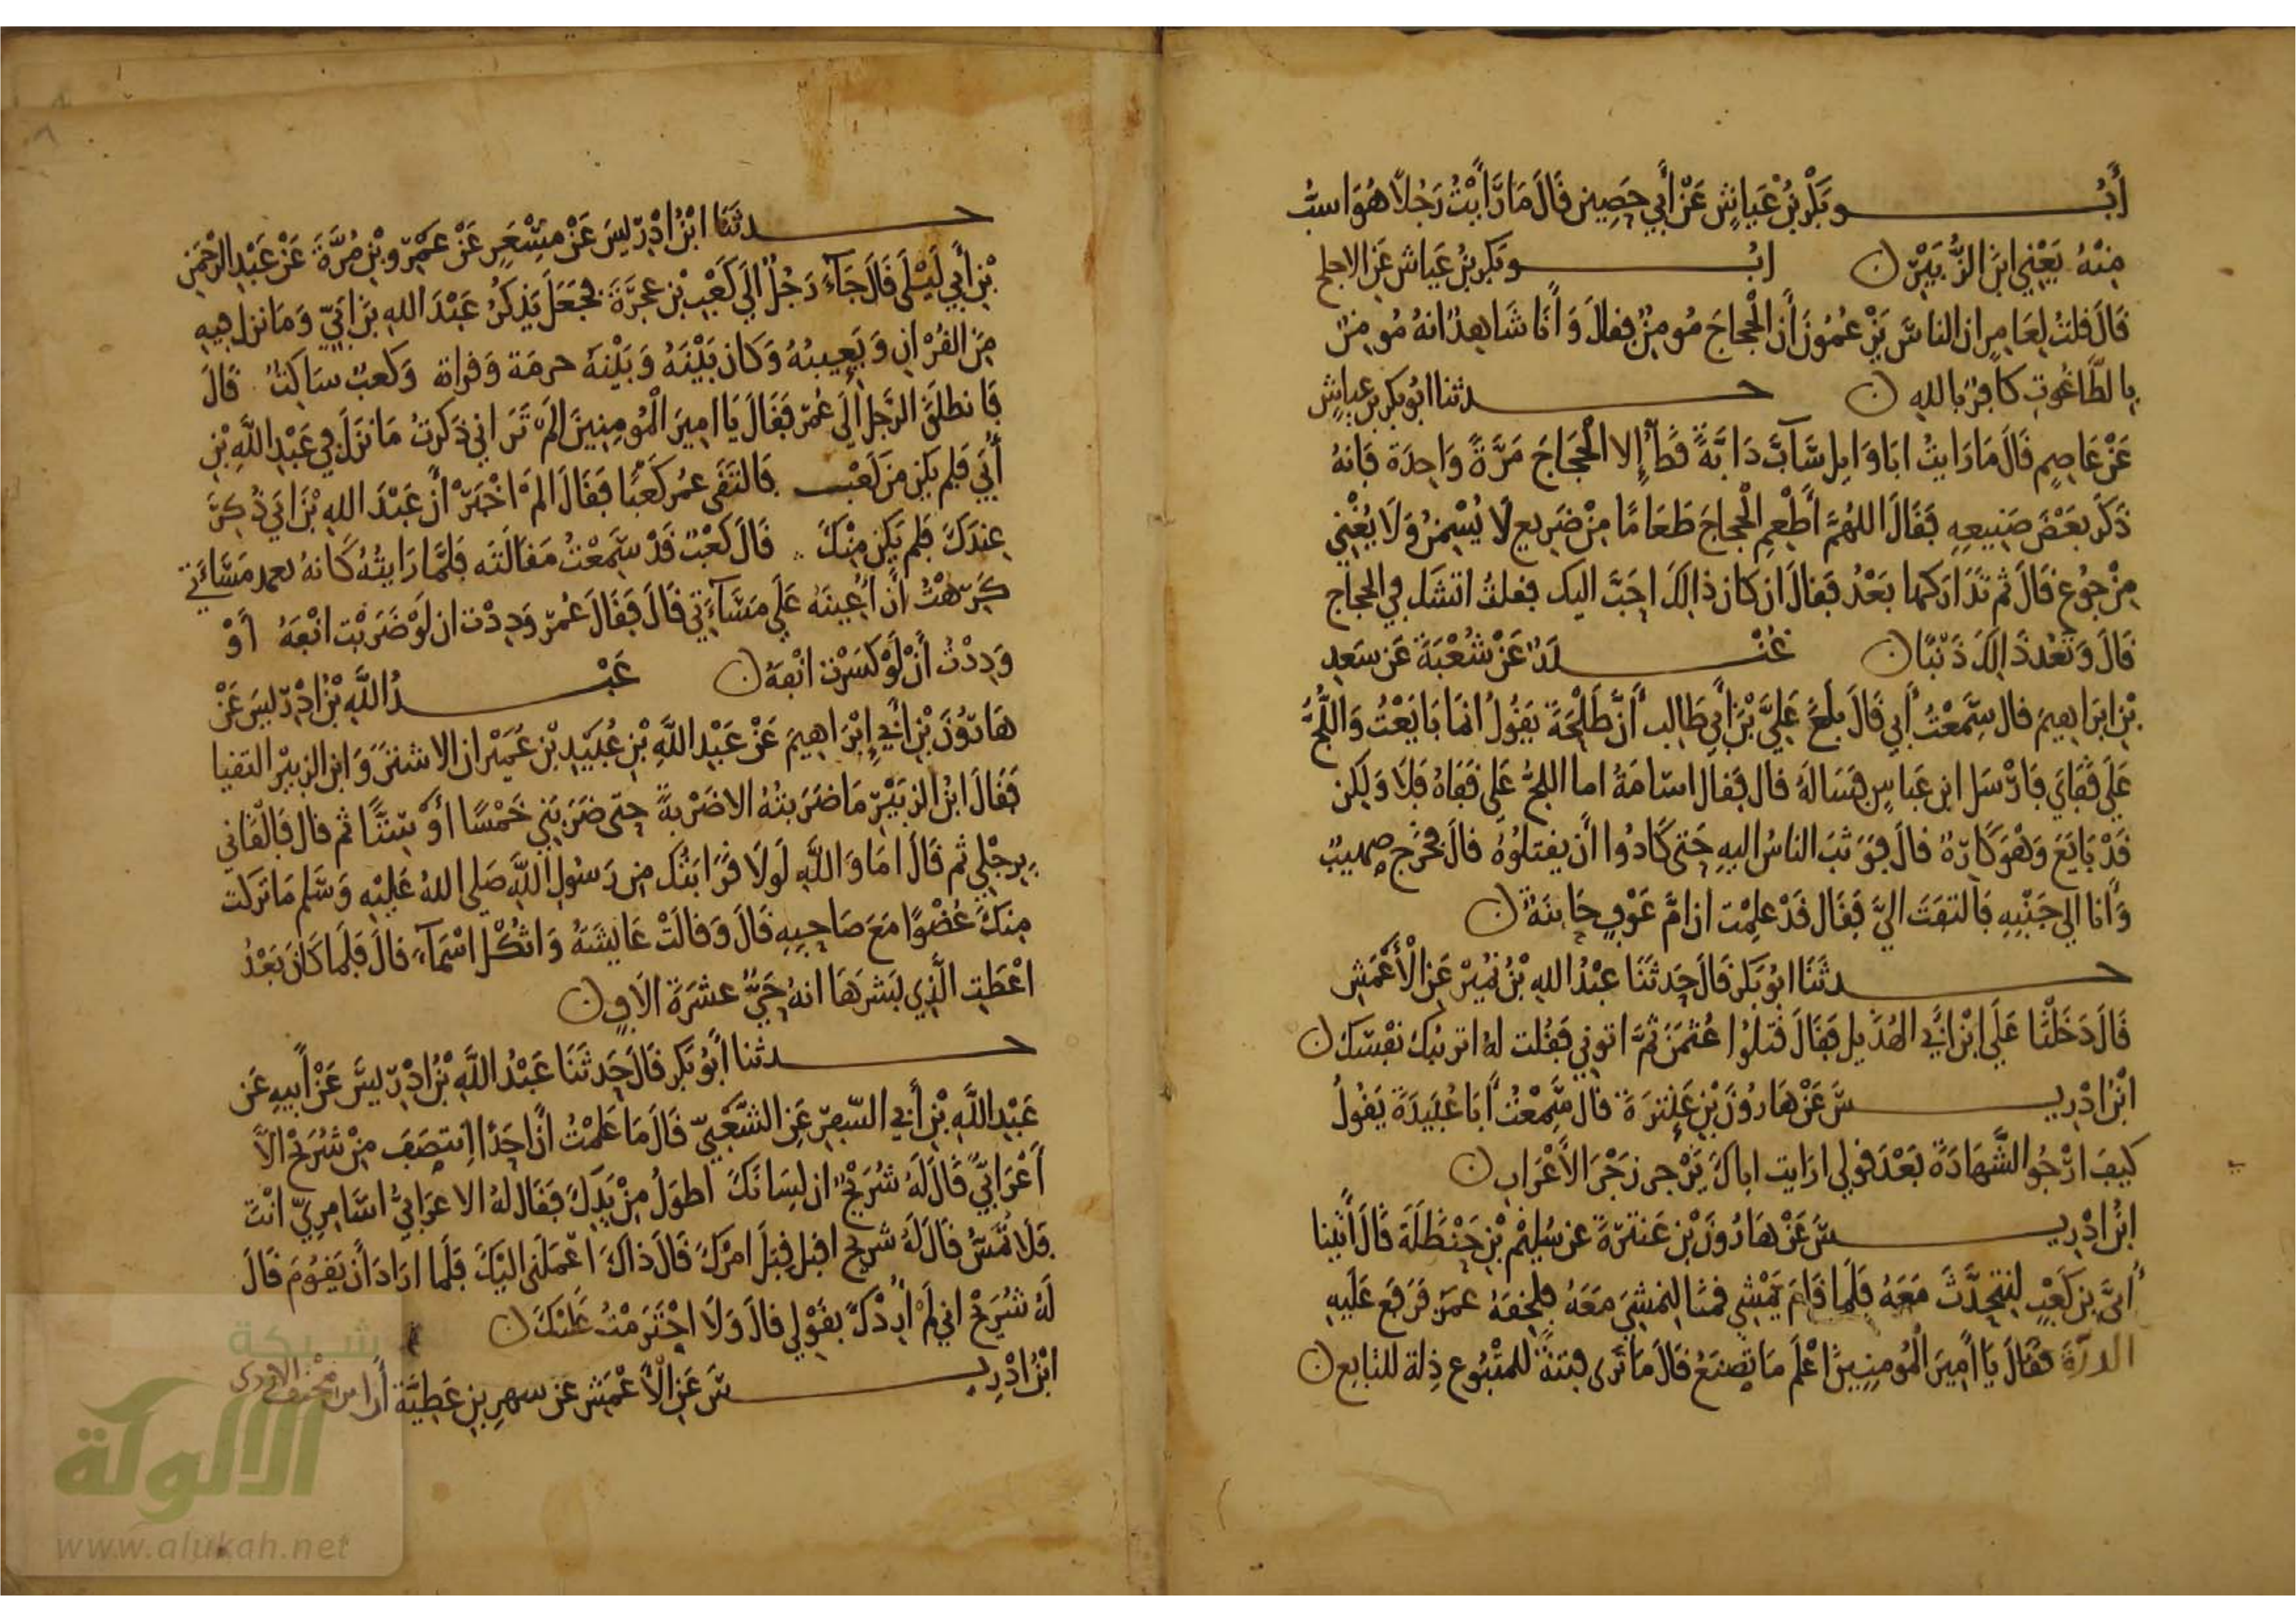 أبو بكر بن عياش عن أبي حصين قال ما رأيت رجلا هو اسب
منه يعني ابن الزبير ن ابو بكر بن عياش عن الاجلح
قال قلت لعامر ان الناس يزعمون أن الحجاج مومن فقال وأنا شاهد انه مومن
بالطاغوت كافر بالله ن حدثنا ابو بكر بن عياش
عن عاصم قال ما رايت ابا وايل سآب دابة قط إلا الحجاج مرة واحدة فانه
ذكر بعض صنيعه فقال اللهم أطعم الحجاج طعاما من ضريع لا يسمن ولا يغني
من جوع قال ثم تداركها بعد فقال ان كان ذالك احب اليك فقلت اتشك في الحجاج
قال وتعد ذالك ذنبا ن غندر عن شعبة عن سعد
بن ابراهيم قال سمعت أبي قال بلغ علي بن أبي طالب أن طلحة يقول انما بايعت واللج
على قفاي فارسل ابن عباس فساله قال فقال اسامة اما اللج على قفاه فلا ولكن
قد بايع وهو كاره قال فوثب الناس اليه حتى كادوا أن يقتلوه قال فخرج صهيب
وأنا الى جنبه فالتفت الي فقال قد علمت ان ام عوف حاينة ن
حدثنا ابو بكر قال حدثنا عبد الله بن نمير عن الأعمش
قال دخلنا على ابن أبي الهذيل فقال قتلوا عثمن ثم اتوني فقلت له اتريبك نفسك ن
ابن ادريس عن هارون بن عنترة قال سمعت أبا عبيدة يقول
كيف ارجو الشهادة بعد قولي ارايت اباك يزجر زجر الأعراب ن
ابن ادريس عن هارون بن عنترة عن سليم بن حنظلة قال أتينا
أبي بن كعب لنتحدث معه فلما قام يمشي قمنا لنمشي معه فلحقه عمر فرفع عليه
الدرة فقال يا أمير المومنين اعلم ما تصنع قال ما ترى فتنة للمتبوع ذلة للتابع ن
حدثنا ابن ادريس عن مسعر عن عمرو بن مرة عن عبد الرحمن
بن أبي ليلى قال جآء رجل الى كعب بن عجرة فجعل يذكر عبد الله بن ابي وما نزل فيه
من القران ويعيبه وكان بينه وبينه حرمة وقرابة وكعب ساكت قال
فانطلق الرجل إلى عمر فقال يا امير المومنين الم تر اني ذكرت ما نزل في عبد الله بن
أبي فلم يكن من كعب فالتقى عمر كعبا فقال الم اخبر أن عبد الله بن ابي ذكر
عندك فلم يكن منك قال كعب قد سمعت مقالته فلما رايته كانه يعمد مسآءتي
كرهت أن أعينه على مسآءتي قال فقال عمر وددت ان لو ضربت انفه أو
وددت أن لو كسرت انفه ن عبد الله بن ادريس عن
هارون بن أبي إبراهيم عن عبد الله بن عبيد بن عمير ان الاشتر وابن الزبير التقيا
فقال ابن الزبير ما ضربته الا ضربة حتى ضربني خمسا أو ستا ثم قال فالقاني
برجلي ثم قال اما والله لولا قرابتك من رسول الله صلى الله عليه وسلم ما تركت
منك عضوا مع صاحبه قال وقالت عايشة واثكل اسمآء قال فلما كان بعد
اعطت الذي بشرها انه حي عشرة الاف ن
حدثنا أبو بكر قال حدثنا عبد الله بن ادريس عن أبيه عن
عبد الله بن أبي السفر عن الشعبي قال ما علمت أن احدا انتصف من شريح الا
أعرابي قال له شريح ان لسانك اطول من يدك فقال له الاعرابي اسامري انت
فلا تمس قال له شريح اقبل قبل امرك قال ذاك اعملني اليك فلما اراد أن يقوم قال
له شريح اني لم أردك بقولي قال ولا اجترمت عليك ن
ابن ادريس عن الأعمش عن سهر بن عطية
شبكة
الألوكة
www.alukah.net